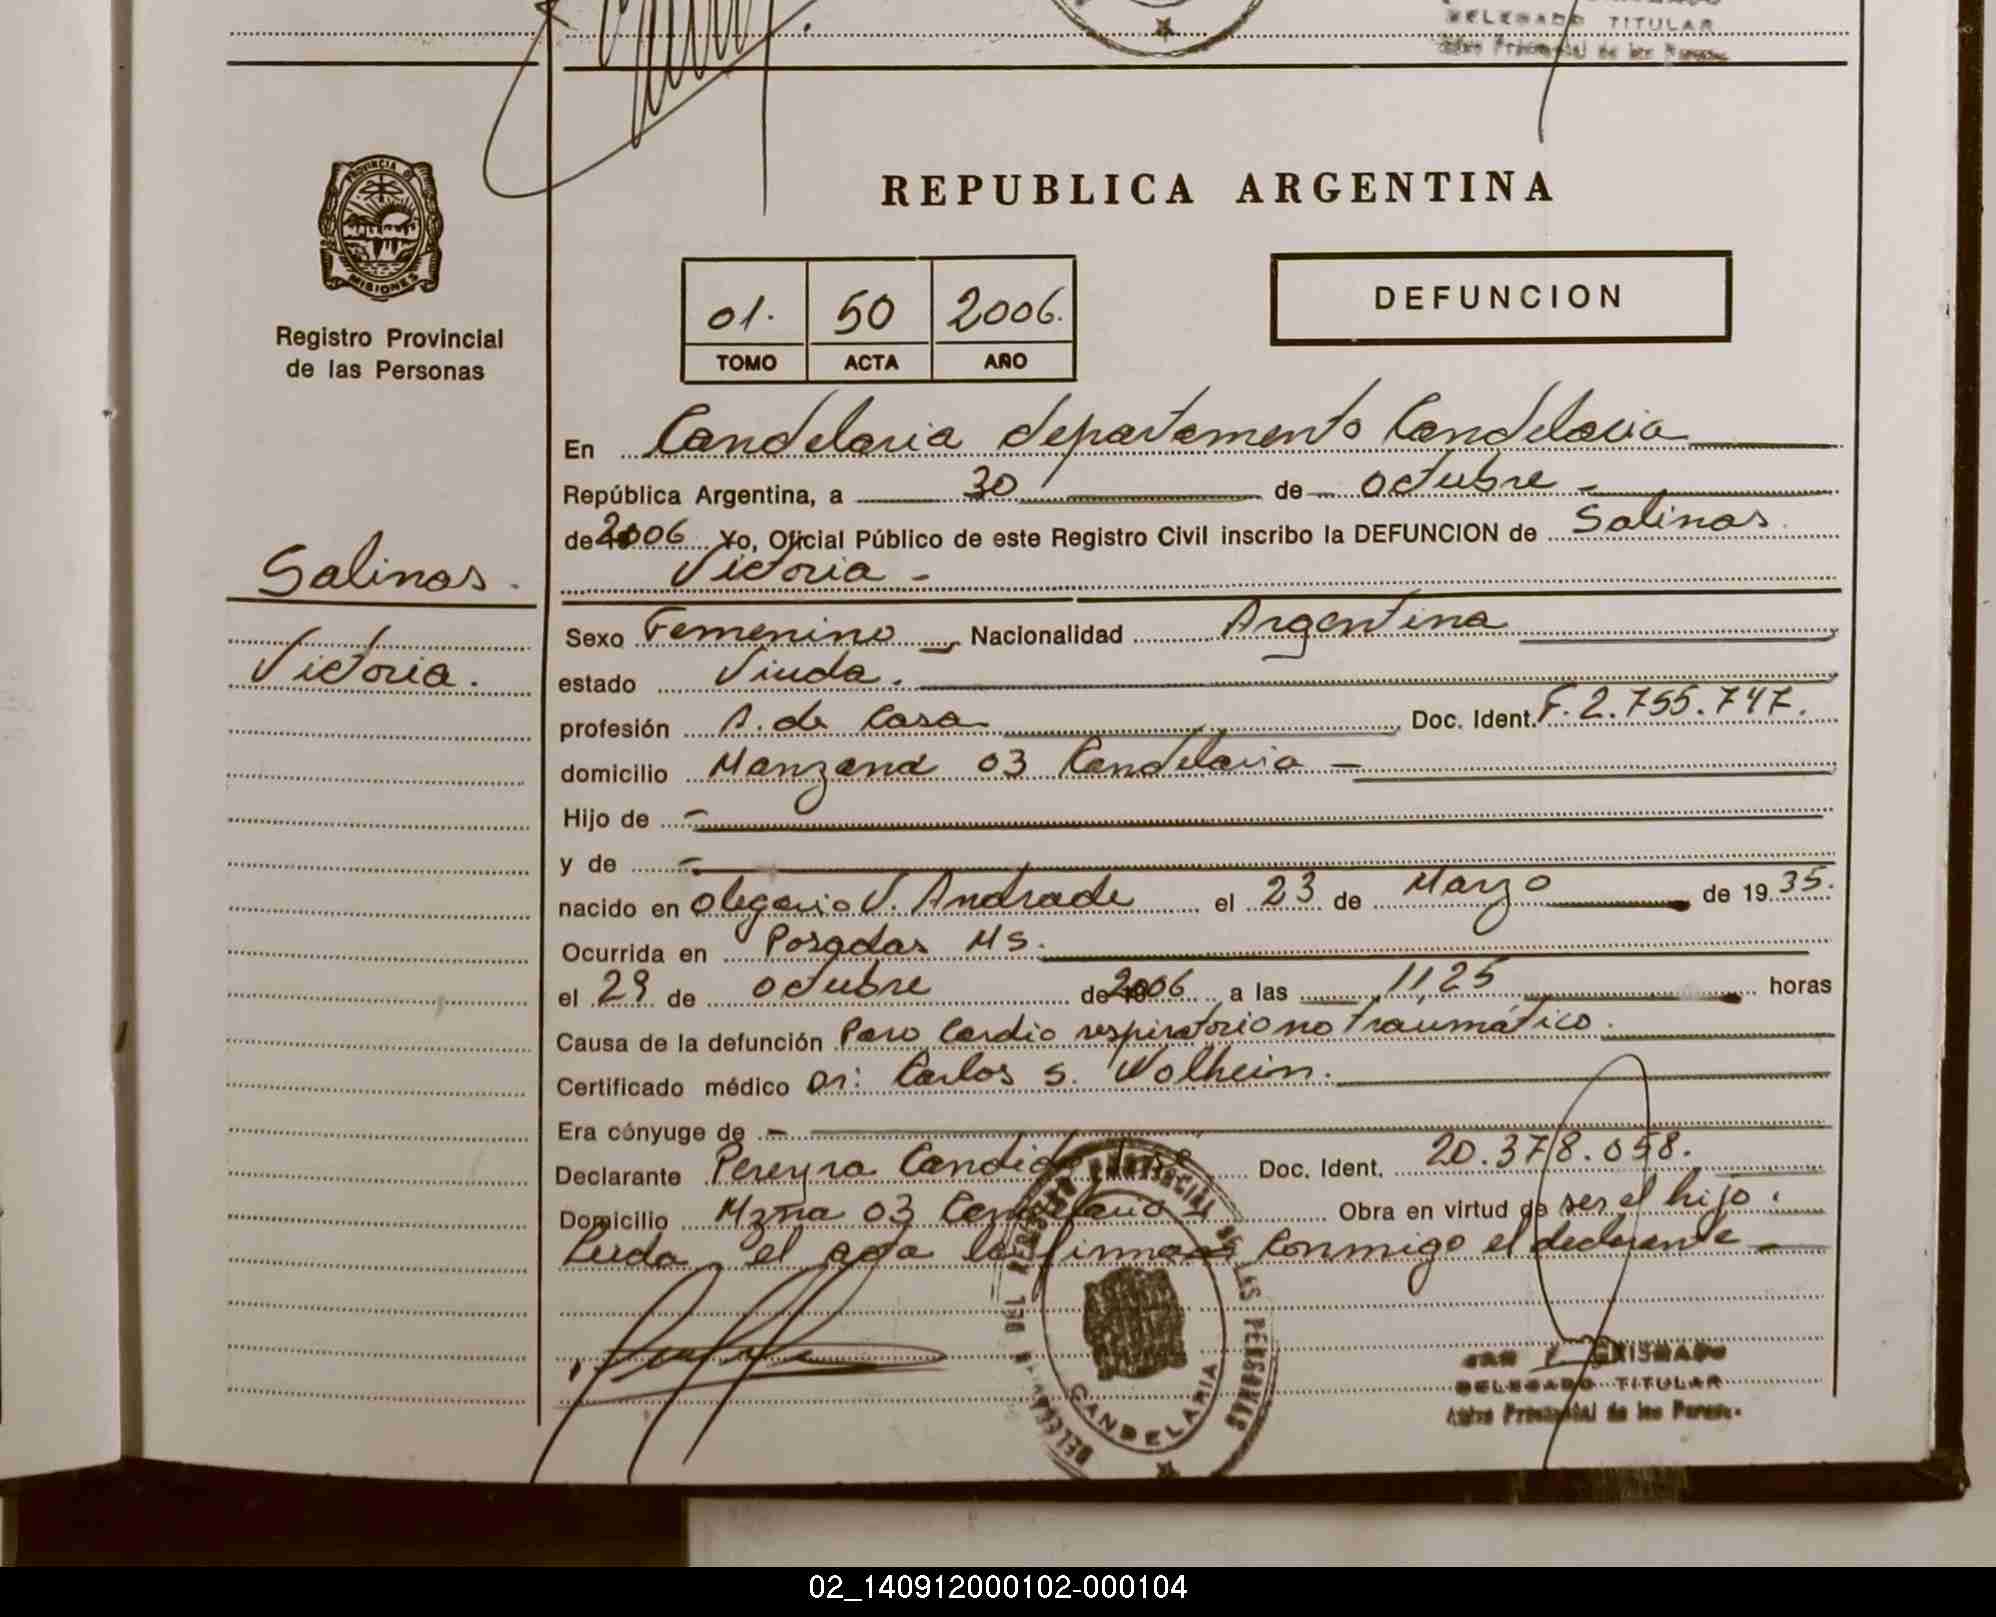 DELEGADO TITULAR
PROVINCIA DE
MISIONES
Registro Provincial
de las Personas
REPUBLICA ARGENTINA
01. 50 2006.
TOMO ACTA AÑO
DEFUNCION
En Candelaria departamento Candelaria
República Argentina, a 30 de octubre -
de 2006 Yo, Oficial Público de este Registro Civil inscribo la DEFUNCION de Salinas
Victoria -
Salinas.
Victoria.
Sexo Femenino Nacionalidad Argentina
estado Viuda.
profesión A. de Casa Doc. Ident. F. 2.755.747.
domicilio Manzana 03 Candelaria -
Hijo de -
y de -
nacido en Olegario V. Andrade el 23 de Marzo de 1935.
Ocurrida en Posadas Ms.
el 29 de octubre de 2006 a las 11,25 horas
Causa de la defunción Paro Cardio respiratorio no traumático.
Certificado médico Dr: Carlos S. Wolhein.
Era cónyuge de -
Declarante Pereyra Candido Doc. Ident. 20.378.058.
Domicilio Mzna 03 Candelaria Obra en virtud de ser el hijo.
Leida el acta la firma conmigo el declarante -
DE LAS PERSONAS
CANDELARIA
DELEGADO TITULAR
02_140912000102-000104